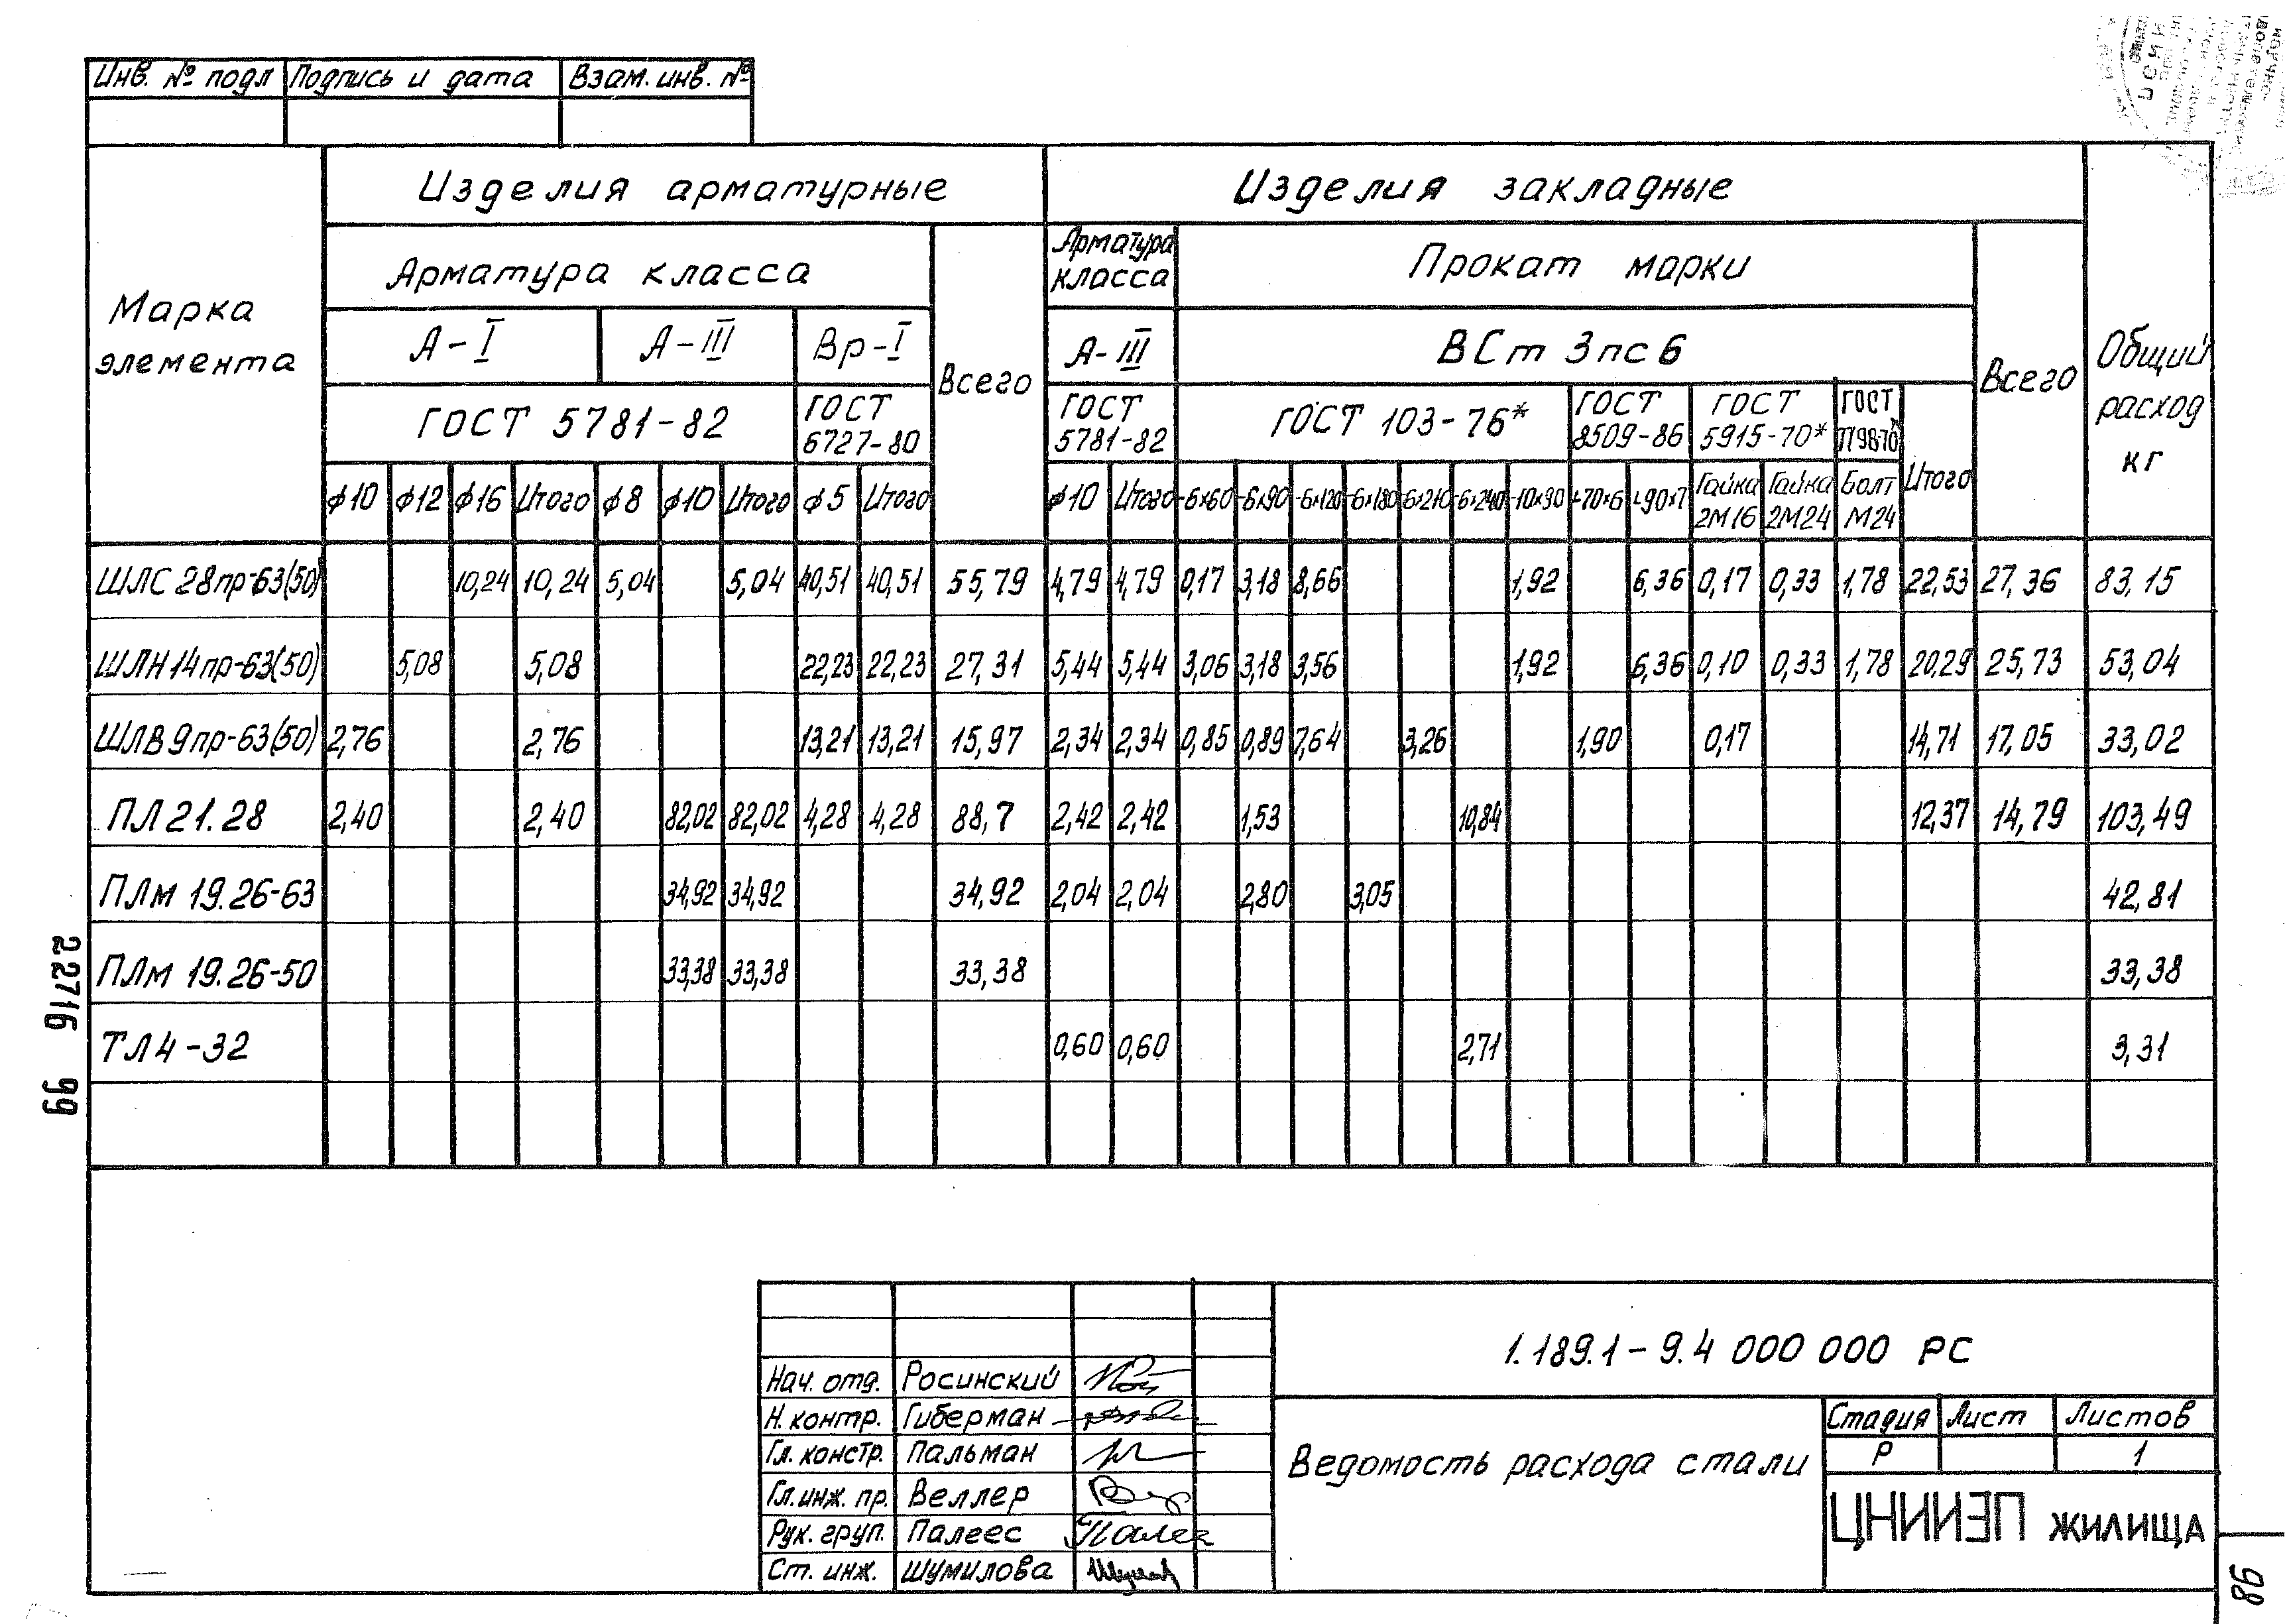 Инв. № подл Подпись и дата Взам. инв. №
Марка элемента
Изделия арматурные Изделия закладные
Общий расход кг
Арматура класса Всего Арматура класса Прокат марки Всего
А-I А-III Вр-I А-III ВСт 3пс6
ГОСТ 5781-82 ГОСТ 6727-80 ГОСТ 5781-82 ГОСТ 103-76* ГОСТ 8509-86 ГОСТ 5915-70* ГОСТ Итого
ф10 ф12 ф16 Итого ф8 ф10 Итого ф5 Итого ф10 Итого -6×60 -6×90 -6×120 -6×180 -6×210 -6×240 -10×90 ∟70×6 ∟90×7 Гайка 2М16 Гайка 2М24 Болт М24
ШЛС 28пр-63(50) 10,24 10,24 5,04 5,04 40,51 40,51 55,79 4,79 4,79 0,17 3,18 8,66 1,92 6,36 0,17 0,33 1,78 22,53 27,36 83,15
ШЛН 14пр-63(50) 5,08 5,08 22,23 22,23 27,31 5,44 5,44 3,06 3,18 3,56 1,92 6,36 0,10 0,33 1,78 20,29 25,73 53,04
ШЛВ 9пр-63(50) 2,76 2,76 13,21 13,21 15,97 2,34 2,34 0,85 0,89 7,64 3,26 1,90 0,17 14,71 17,05 33,02
ПЛ 21.28 2,40 2,40 82,02 82,02 4,28 4,28 88,7 2,42 2,42 1,53 10,84 12,37 14,79 103,49
ПЛм 19.26-63 34,92 34,92 34,92 2,04 2,04 2,80 3,05 42,81
ПЛм 19.26-50 33,38 33,38 33,38 33,38
ТЛ4-32 0,60 0,60 2,71 3,31
22716 99
1.189.1-9.4 000 000 РС
Нач. отд. Росинский
Н. контр. Гиберман
Гл. констр. Пальман
Гл. инж. пр. Веллер
Рук. груп. Палеес
Ст. инж. Шумилова
Ведомость расхода стали
Стадия Лист Листов
Р 1
ЦНИИЭП жилища
98